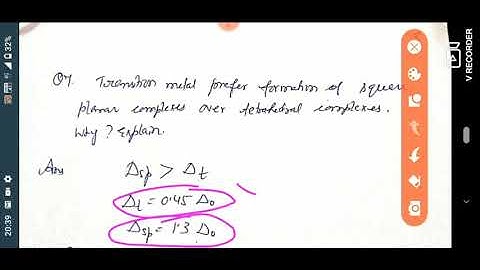 Q7. Transition metal prefer formation of square
planar complexes over tetrahedral complexes.
Why? Explain.
Ans Δsp > Δt
Δt = 0.45 Δo
Δsp = 1.3 Δo
20:39
32%
V RECORDER